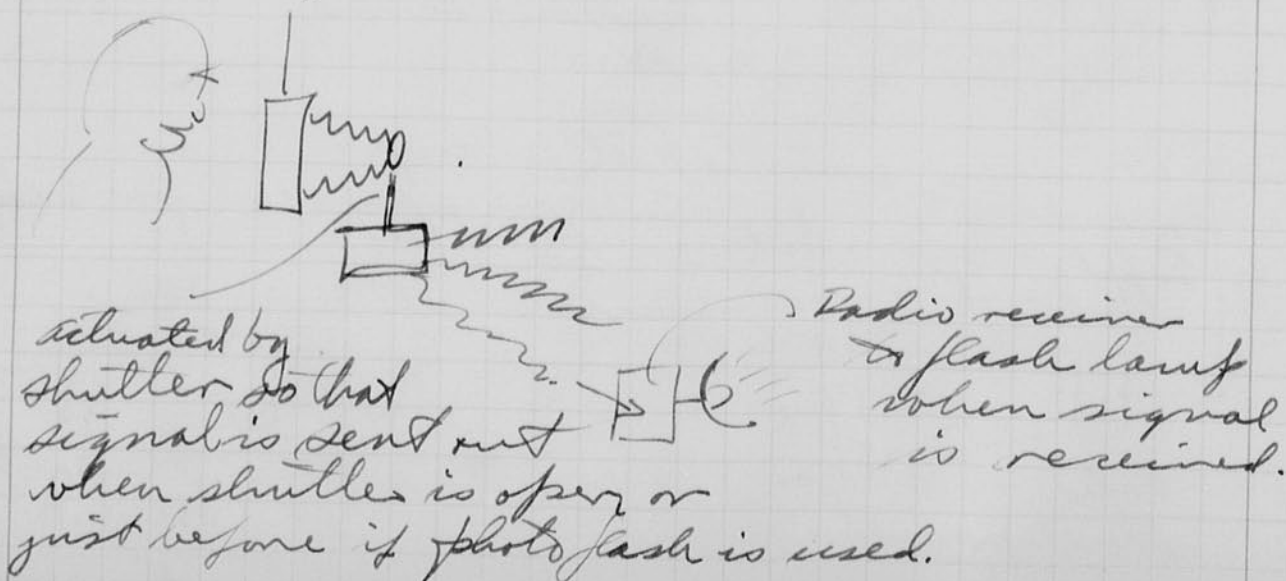 actuated by
shutter so that
signal is sent out
when shutter is open or
just before if photoflash is used.
Radio receiver
to flash lamp
when signal
is received.